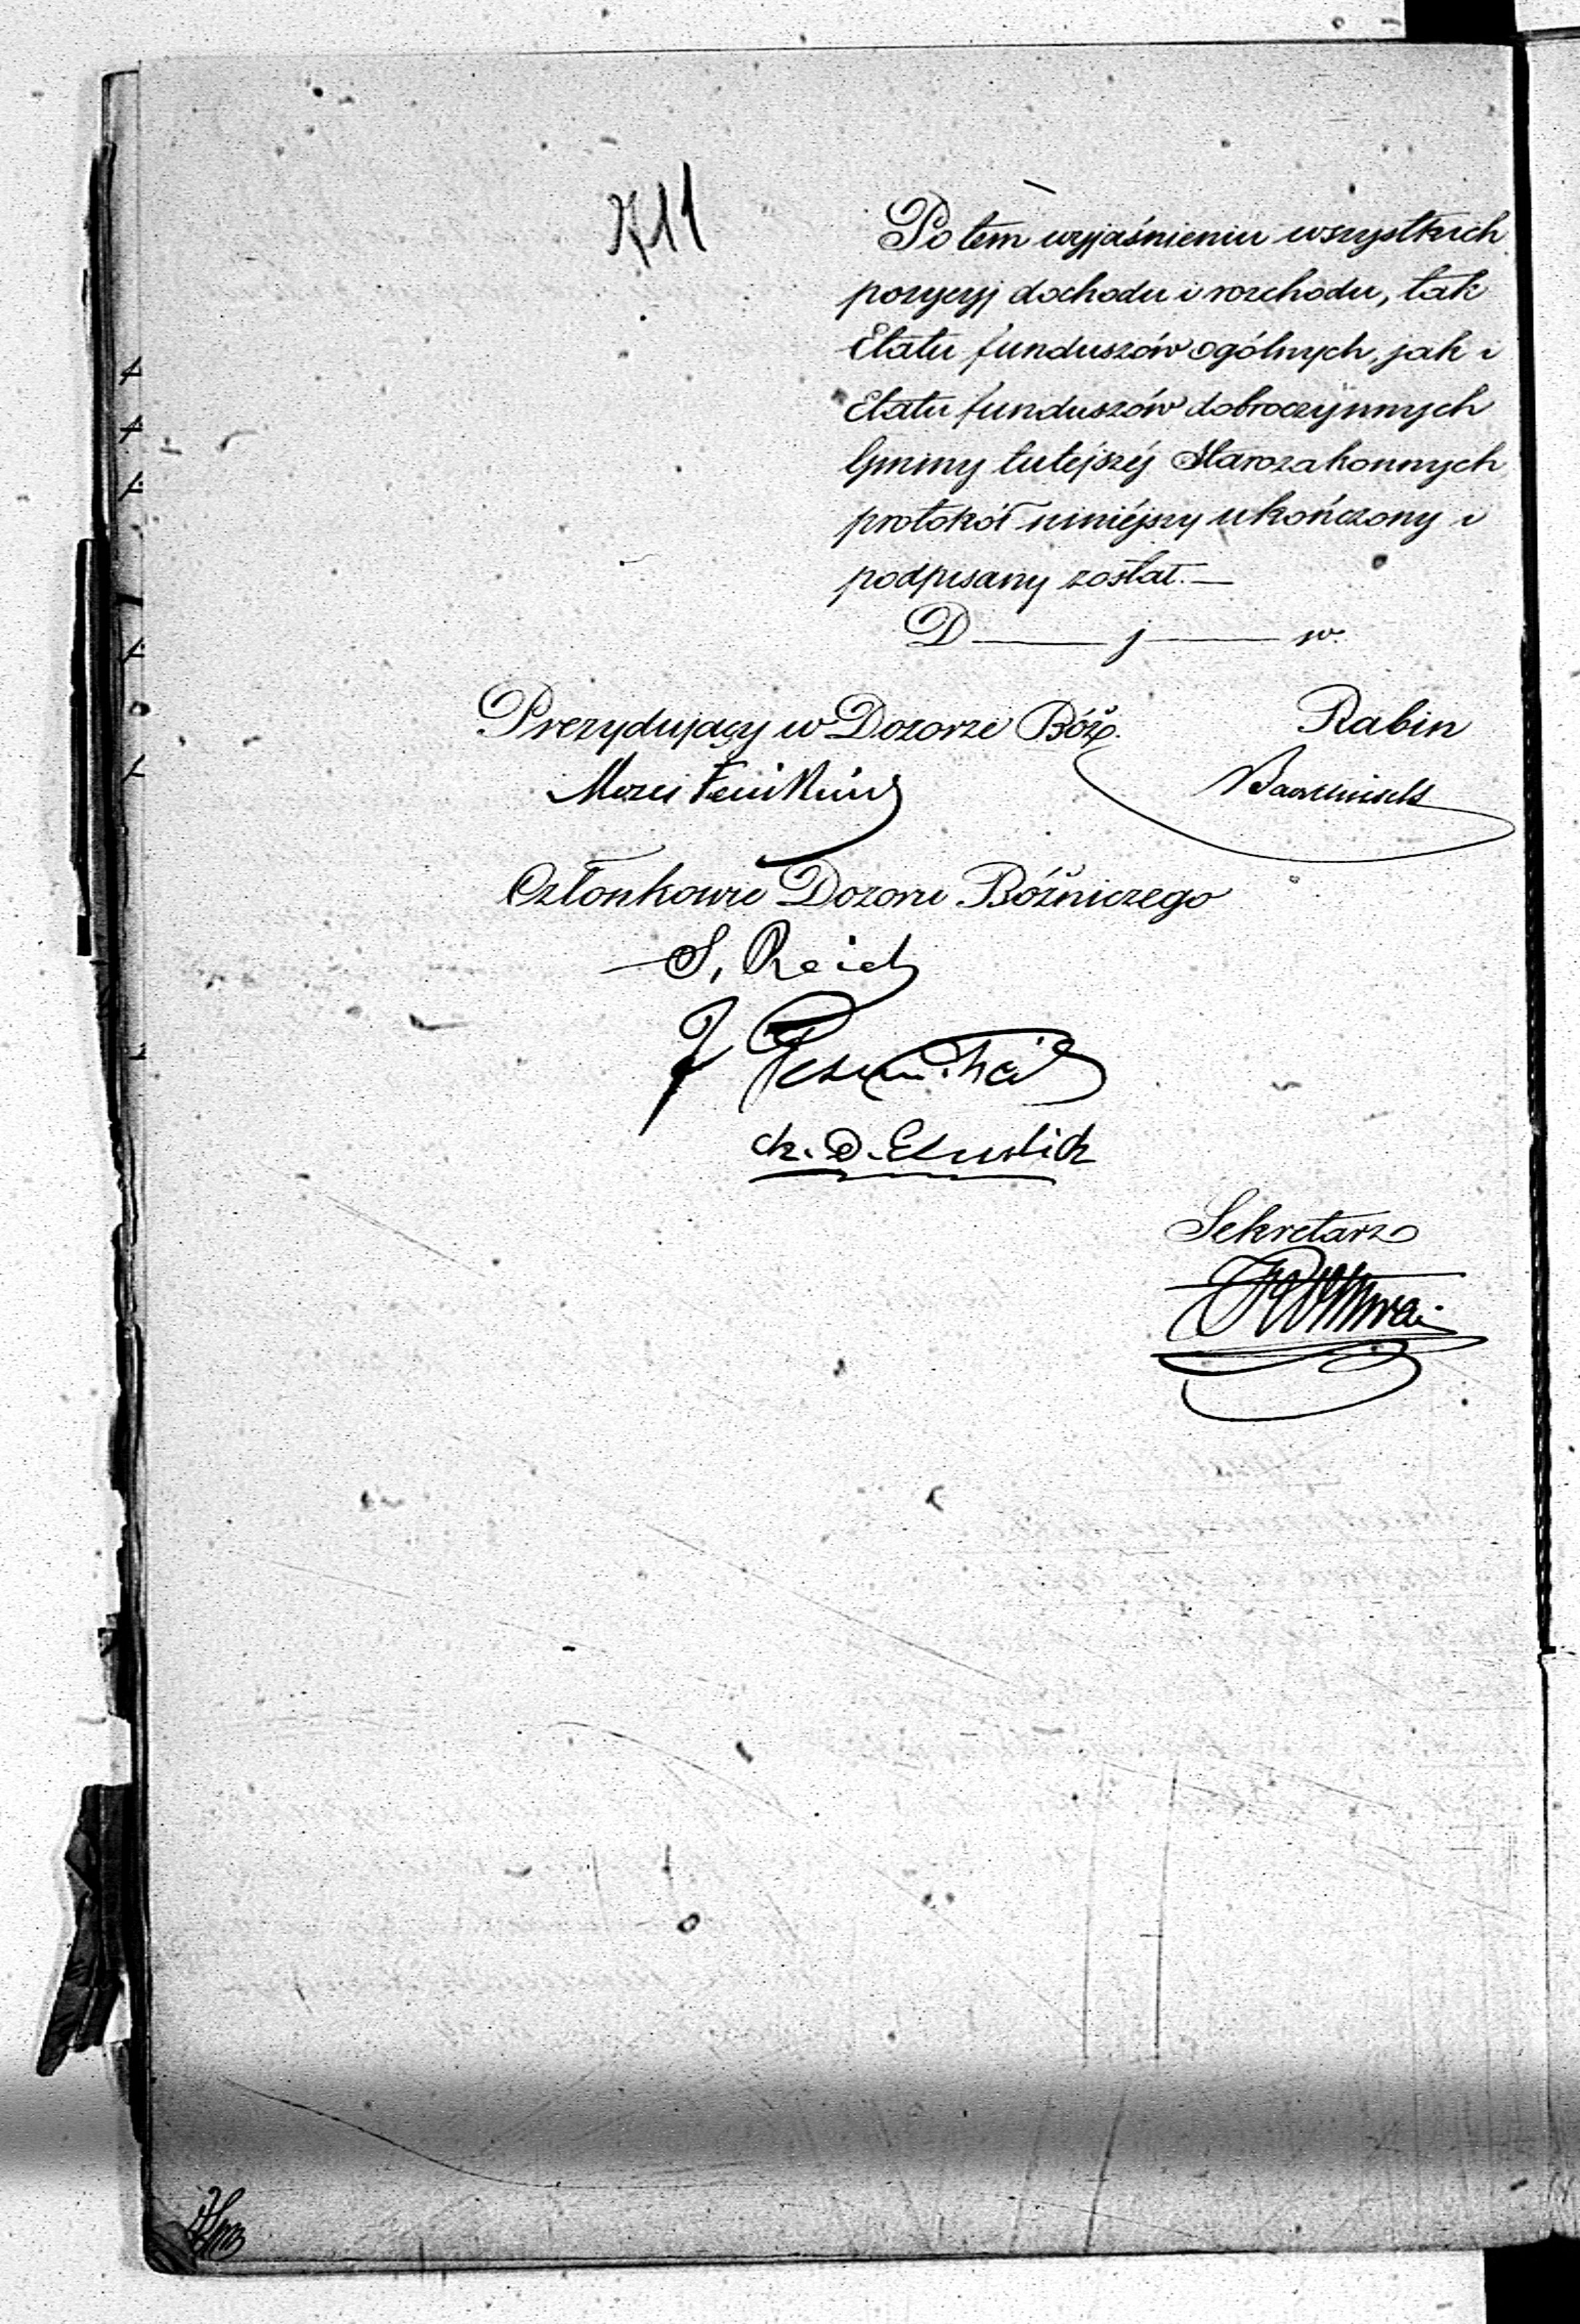 Po tem wyjaśnieniu wszystkich
pozycyj dochodu i rozchodu, tak
Etatu funduszów ogólnych, jak i
Etatu funduszów dobroczynnych
Gminy tutejszéj Starozakonnych
protokół niniéjszy ukończony i
podpisany został. —
D — j — w.
Prezydujący w Dozorze Bóż.
Rabin
Członkowie Dozoru Bóżniczego
S. Reich
Sekretarz